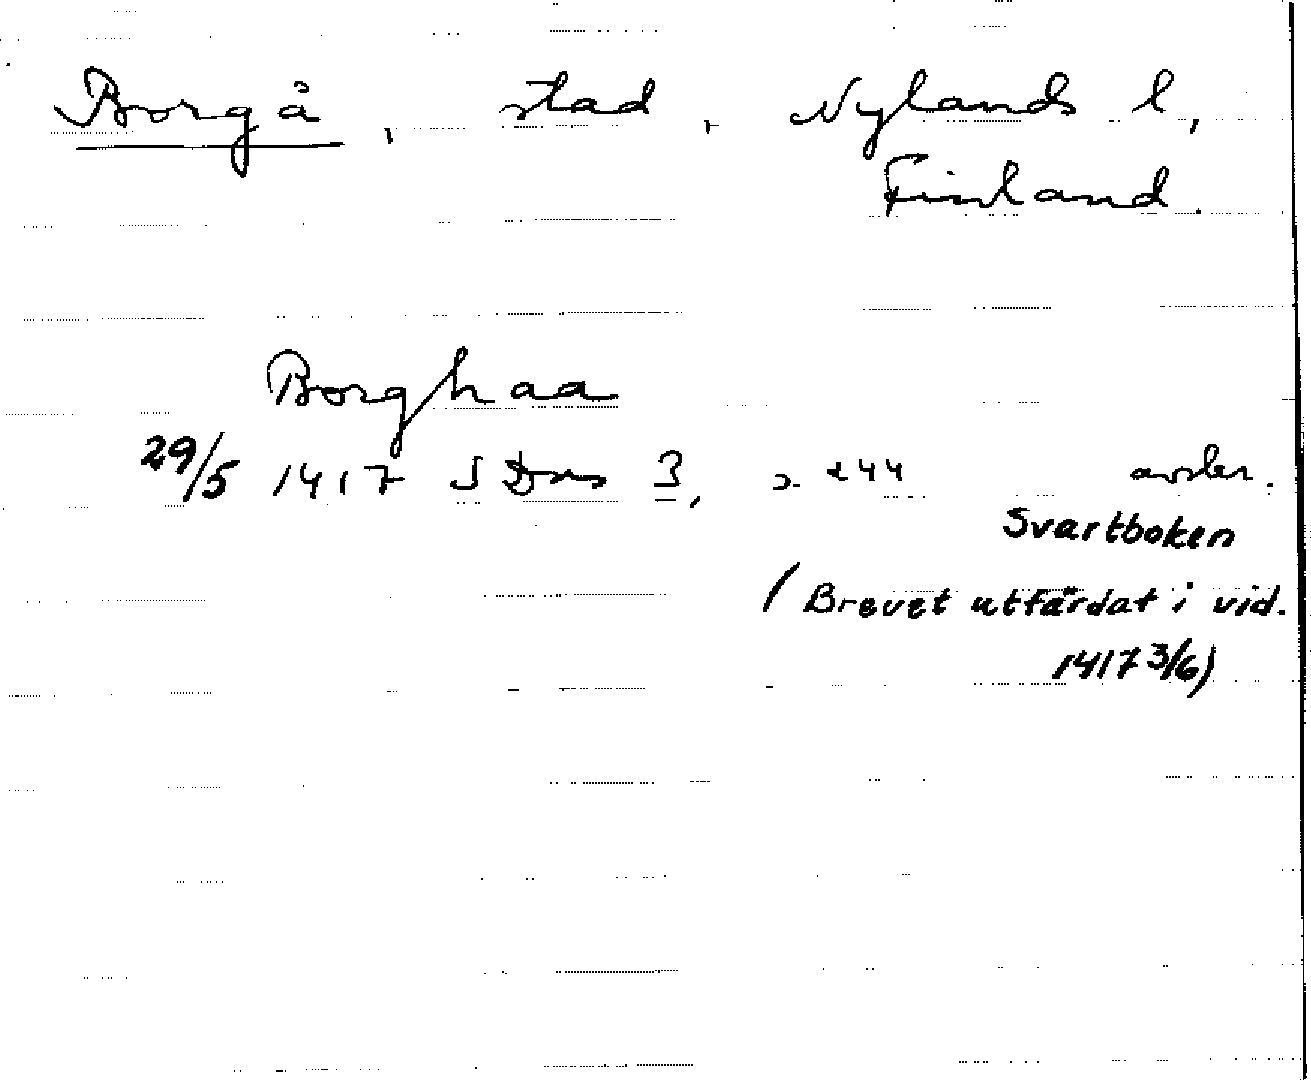 Borgå, stad, Nylands l,
Finland.
Borghaa
29/5 1417 SDns 3, s. 244 avskr.
Svartboken
(Brevet utfärdat i vid.
1417 3/6)